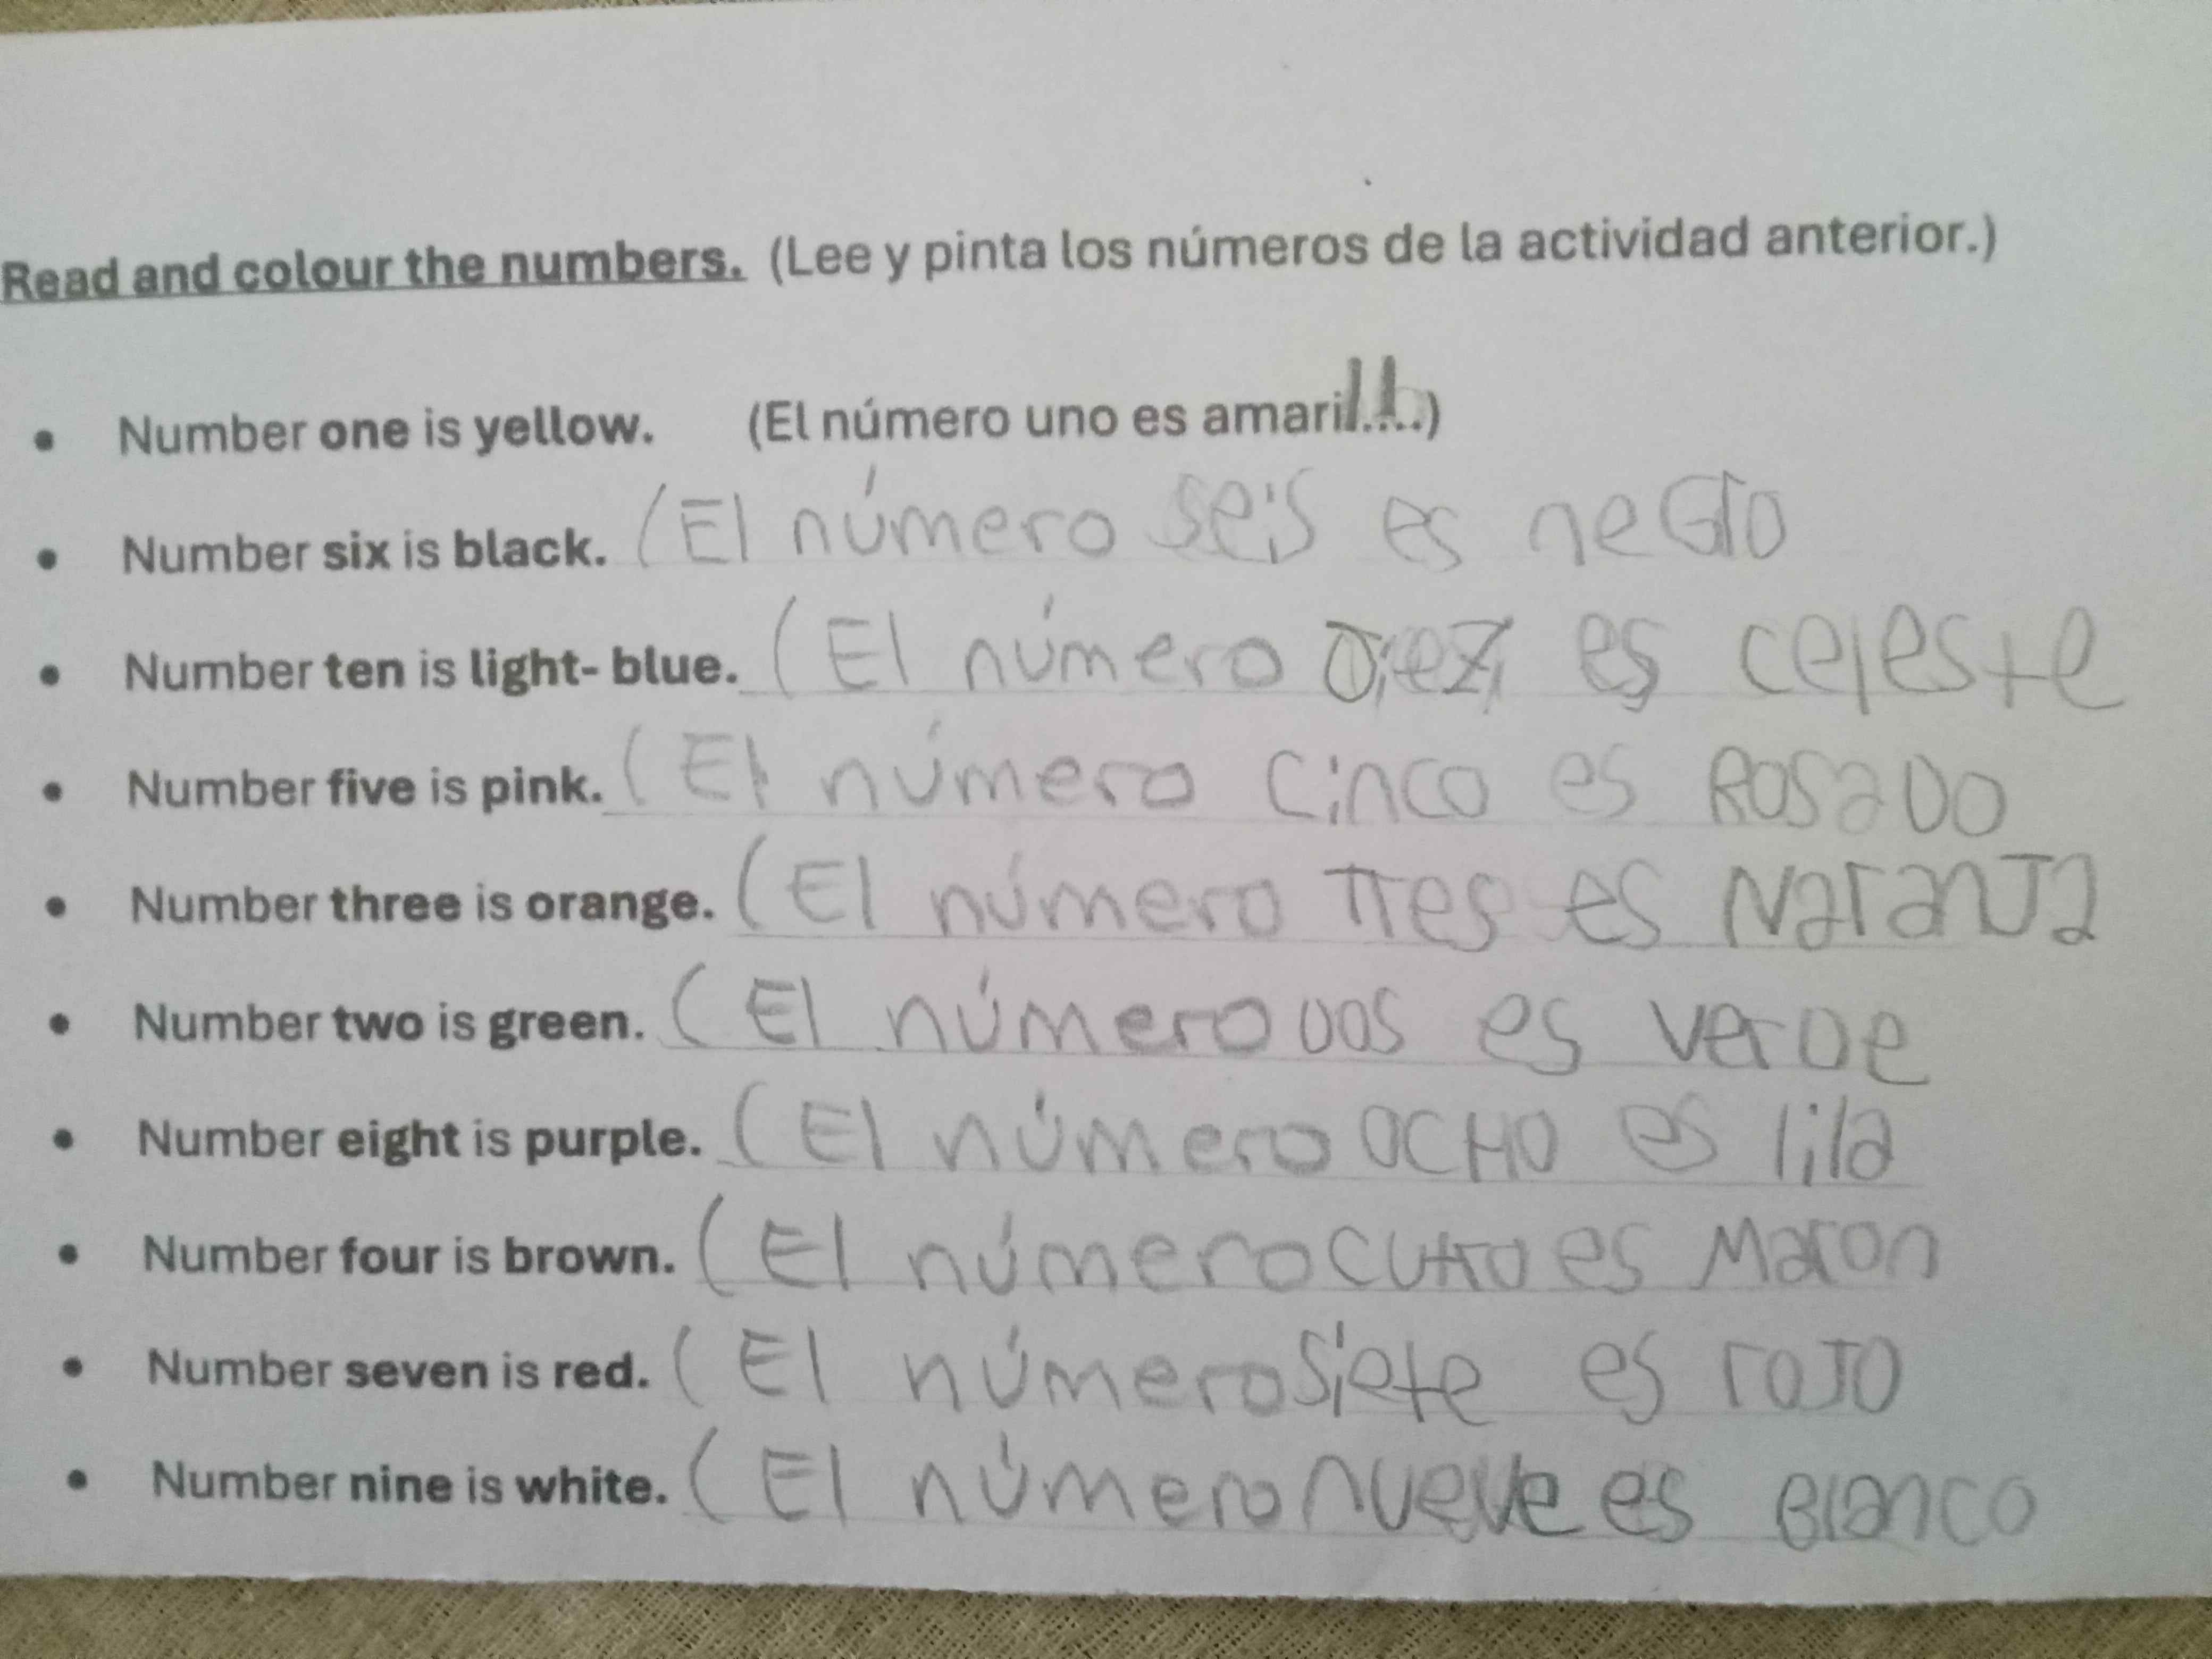 Read and colour the numbers. (Lee y pinta los números de la actividad anterior.)
• Number one is yellow. (El número uno es amarill...)
• Number six is black. (El número seis es neGro
• Number ten is light- blue. (El número Diez es celeste
• Number five is pink. (El número cinco es RosaDo
• Number three is orange. (El número Tres es NaranJa
• Number two is green. (El número DOS es verDe
• Number eight is purple. (El número OCHO es lila
• Number four is brown. (El número cutro es Maron
• Number seven is red. (El número siete es roJo
• Number nine is white. (El número nueve es Blanco